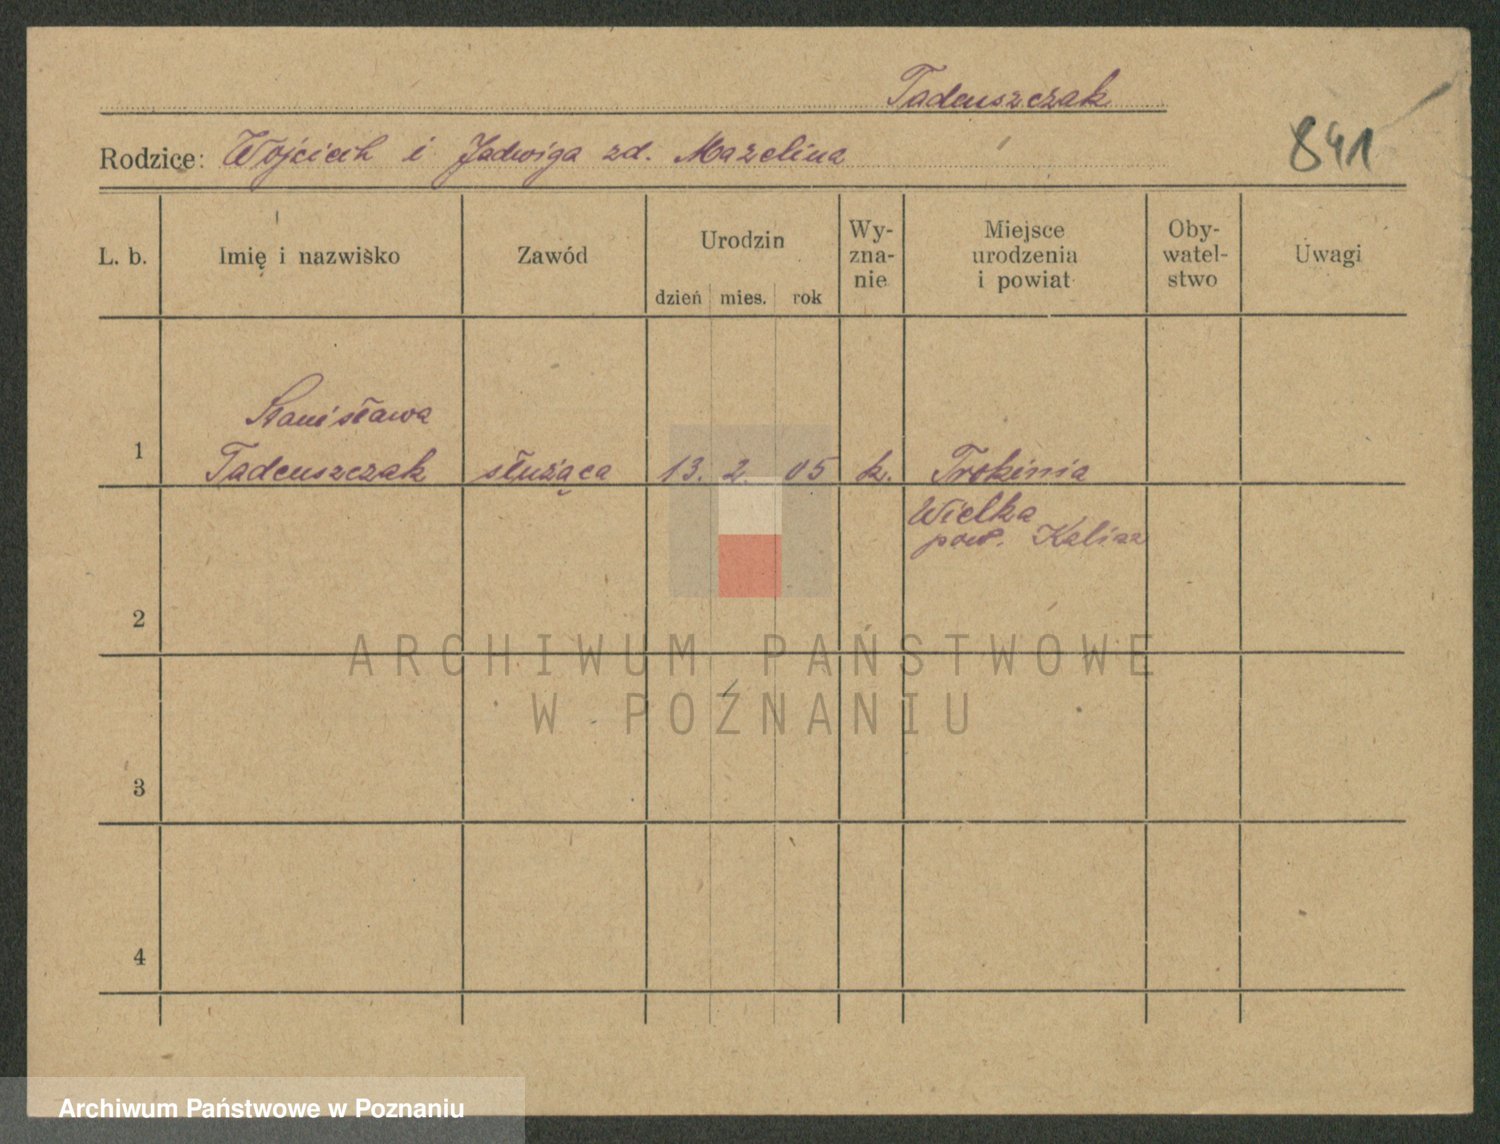 Tadeuszczak
Rodzice: Wojciech i Jadwiga zd. Mazelina
841
L. b.
Imię i nazwisko
Zawód
Urodzin
dzień mies. rok
Wy-
zna-
nie
Miejsce
urodzenia
i powiat
Oby-
watel-
stwo
Uwagi
Stanisława
1 Tadeuszczak służąca 13. 2. 05 k. Trokinia
Wielka
pow. Kalisz
2
ARCHIWUM PAŃSTWOWE
W POZNANIU
3
4
Archiwum Państwowe w Poznaniu